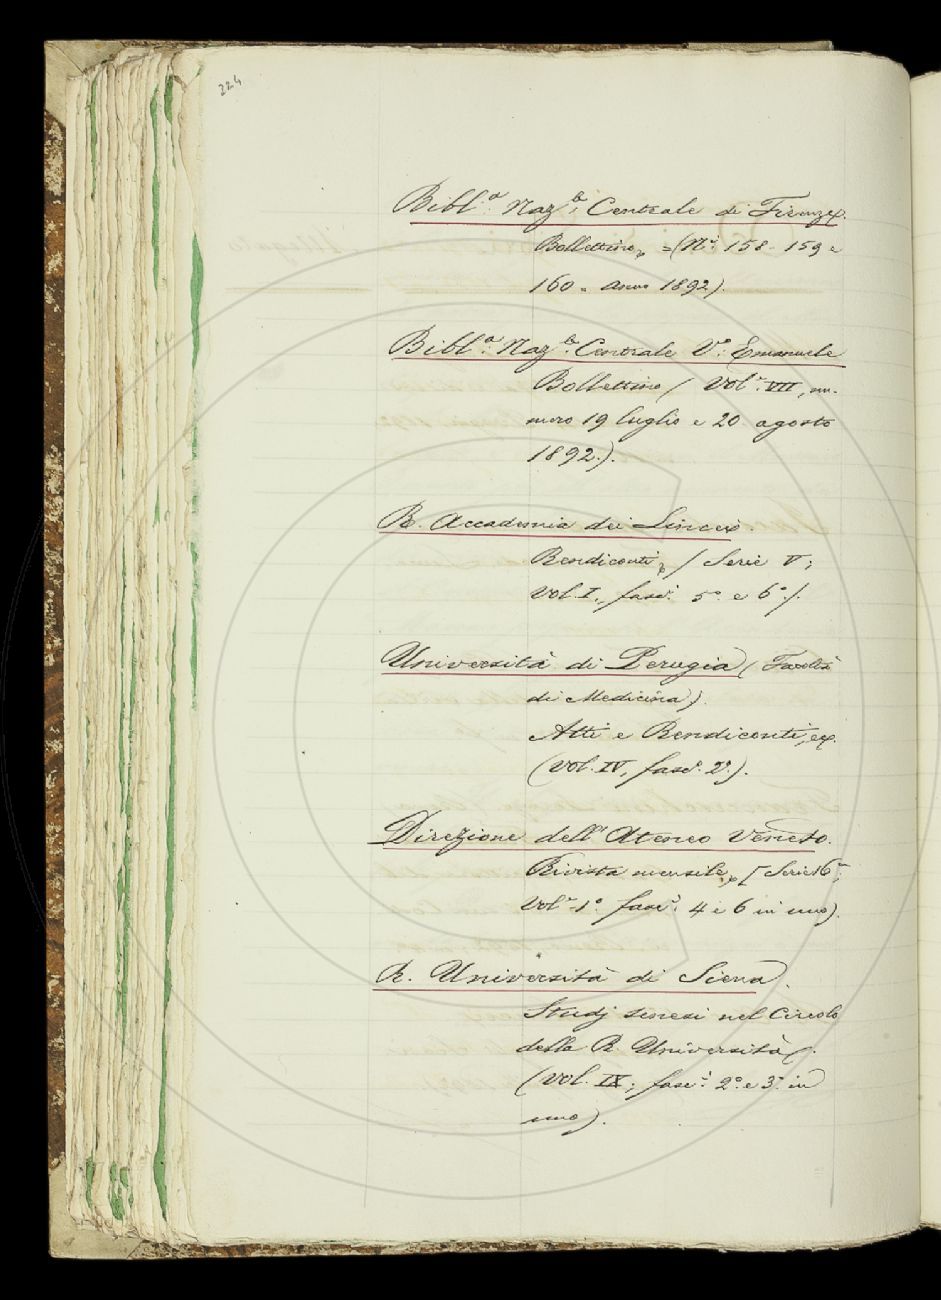 224
Bibl.ª Naz.le Centrale di Firenze.
Bollettino, =(N.i 158-159 e
160 - anno 1892).
Bibl.ª Naz.le Centrale V.o Emanuele
Bollettino / Vol.e VII, nu-
mero 19 luglio e 20 agosto
1892.).
R. Accademia dei Lincei.
Rendiconti, / Serie V;
Vol. I., fasc.i 5.º e 6.º/.
Università di Perugia (Facoltà
di Medicina).
Atti e Rendiconti,
(Vol. IV, fasc.º 2.º).
Direzione dell'Ateneo Veneto.
Rivista mensile, [Serie 16ª;
Vol.e 1.º fasc.i 4 e 6 in uno).
R. Università di Siena.
Studj senesi nel Circolo
della R. Università.
(Vol. IX; fasc.i 2.º e 3.º in
uno).